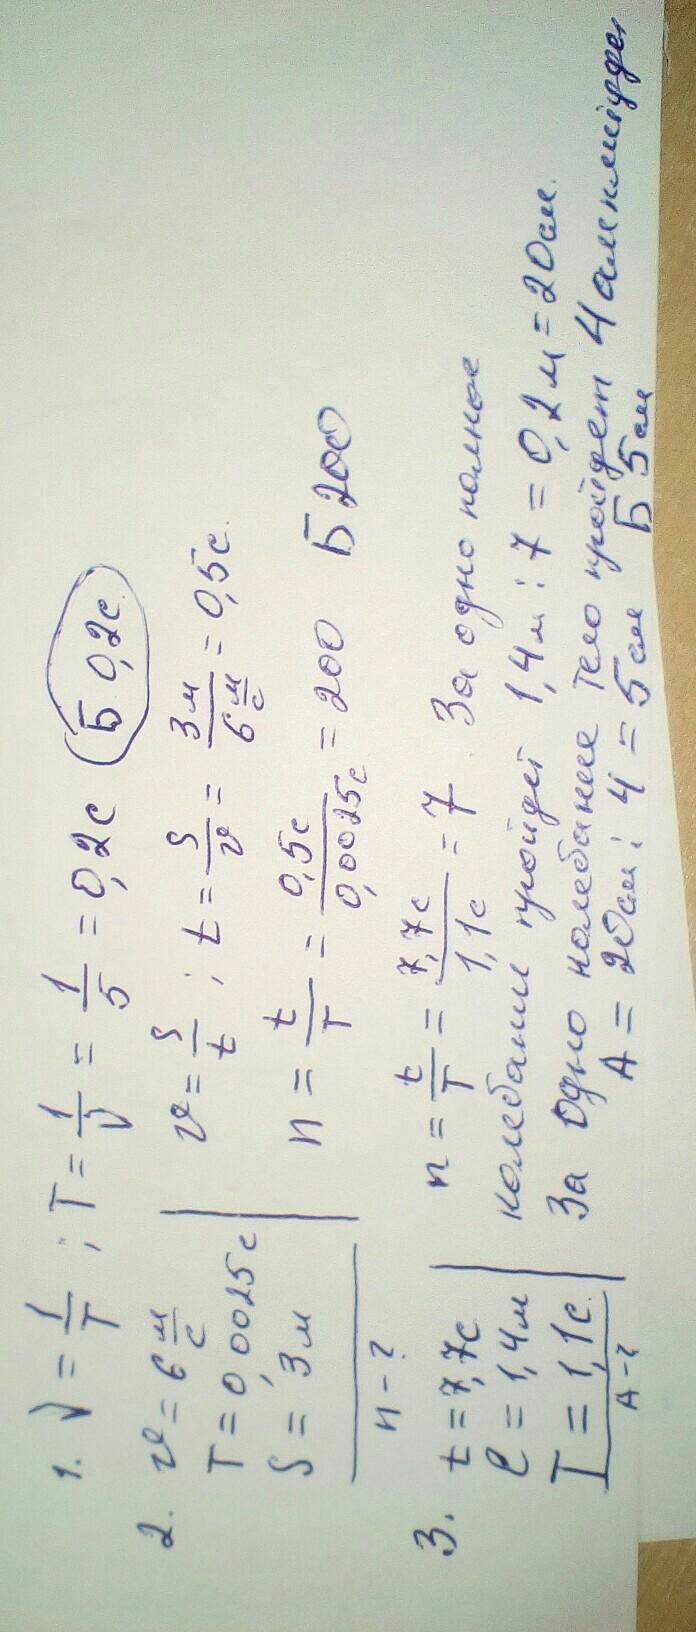 1. ν = 1/T ; T = 1/ν = 1/5 = 0,2с Б 0,2с
2. υ = 6 м/с
T = 0,0025с
S = 3м
n - ?
υ = S/t ; t = S/υ = 3м/6м/с = 0,5с.
n = t/T = 0,5с/0,0025с = 200 Б 200
3. t = 7,7с
ℓ = 1,4м
T = 1,1с.
A - ?
n = t/T = 7,7с/1,1с = 7 За одно полное
колебание пройдет 1,4м : 7 = 0,2м = 20см.
За одно колебание тело пройдет 4 амплитуды
A = 20см : 4 = 5см Б 5см